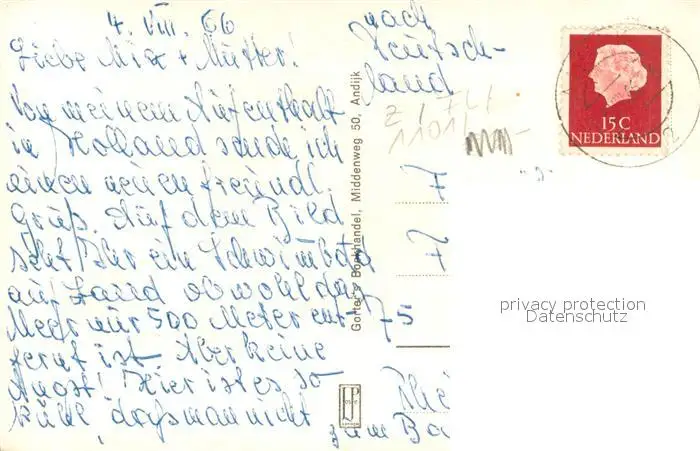 4. VIII. 66
Liebe Mia + Mutter!
Von meinem Aufenthalt
in Holland sende ich
einen neuen freundl.
Gruß. Auf dem Bild
seht Ihr ein Schwimmbad
auf Land obwohl das
Meer nur 500 Meter ent-
fernt ist. Aber keine
Angst! Hier ist es so
kühl, dass man nicht
zum Ba
nach
Deutsch-
land
Gorter's Boekhandel, Middenweg 50, Andijk
75
Rhei
15 C
NEDERLAND
privacy protection
Datenschutz